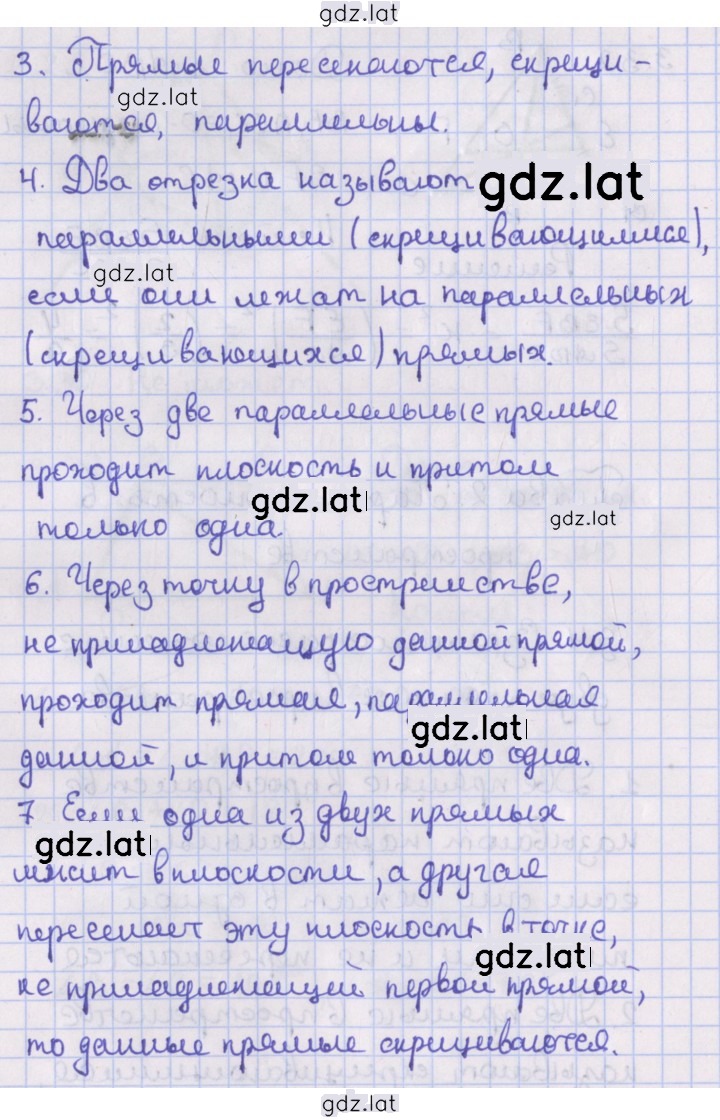 gdz.lat
3. Прямые пересекаются, скрещи-
gdz.lat
ваются, параллельны.
4. Два отрезка называют gdz.lat
параллельными (скрещивающимися),
gdz.lat
если они лежат на параллельных
(скрещивающихся) прямых.
5. Через две параллельные прямые
проходит плоскость и притом
gdz.lat gdz.lat
только одна.
6. Через точку в пространстве,
не принадлежащую данной прямой,
проходит прямая, параллельная
gdz.lat
данной, и притом только одна.
7 Если одна из двух прямых
gdz.lat
лежит в плоскости, а другая
пересекает эту плоскость в точке,
gdz.lat
не принадлежащей первой прямой,
то данные прямые скрещиваются.
gdz.lat